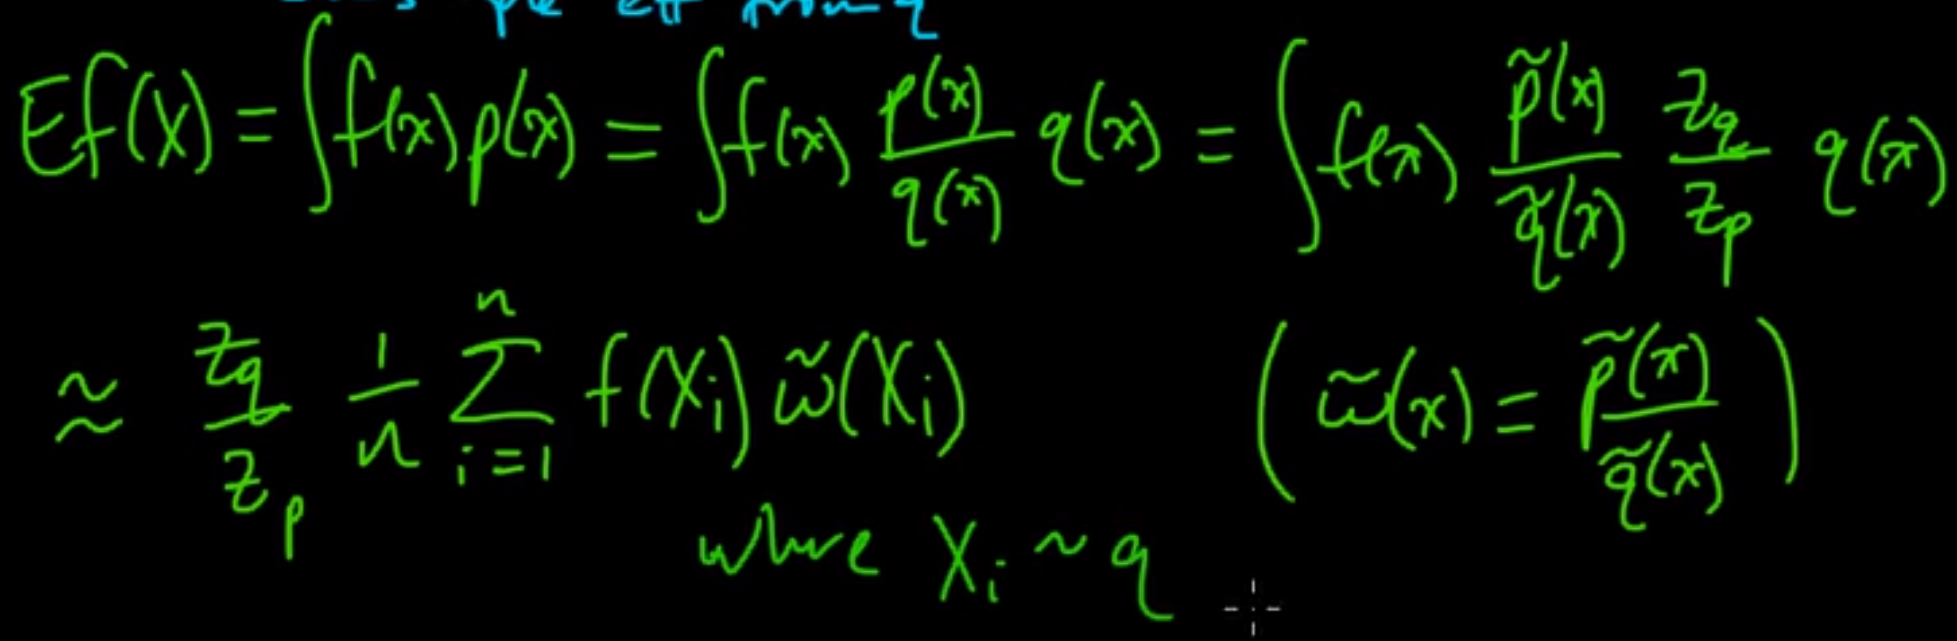 from q
Ef(X) = ∫f(x)p(x) = ∫f(x) p(x)/q(x) q(x) = ∫f(x) p̃(x)/q̃(x) z_q/z_p q(x)
≈ z_q/z_p 1/n ∑_{i=1}^{n} f(X_i) w̃(X_i) ( w̃(x) = p̃(x)/q̃(x) )
where X_i ~ q